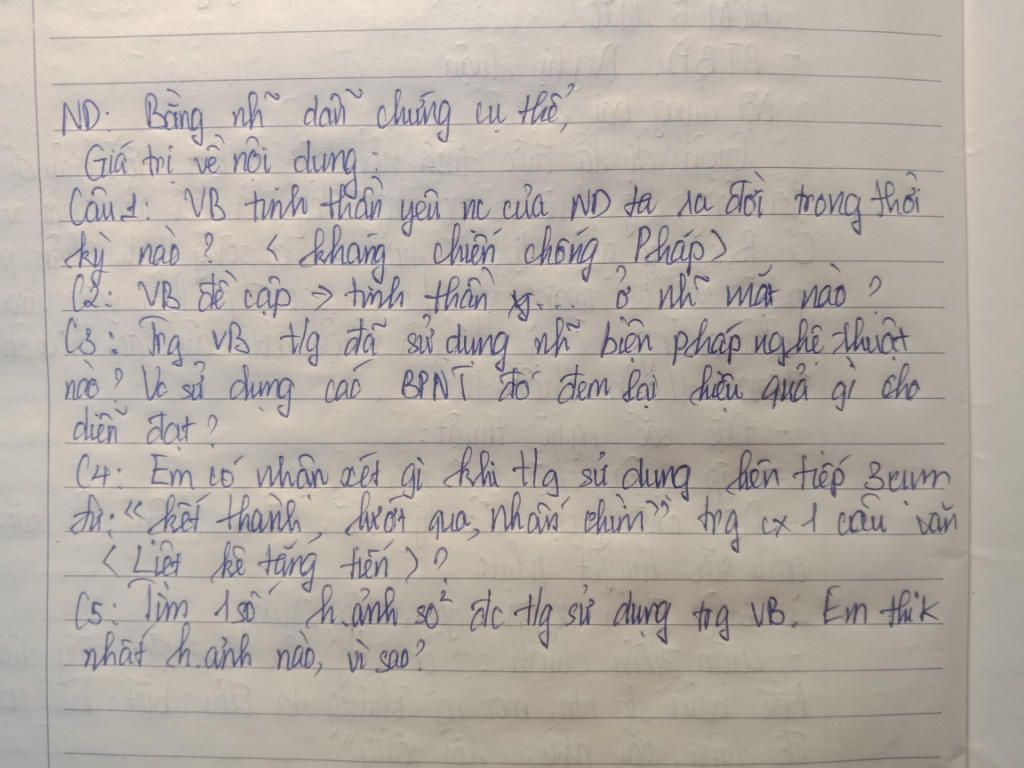 ND: Bằng nhữ dẫn chứng cụ thể,
Giá trị về nội dung:
Câu 1: VB tinh thần yêu nc của ND ta ra đời trong thời
kỳ nào? <kháng chiến chống Pháp>
C2: VB đề cập → tinh thần ... ở nhữ mặt nào?
C3: Trg VB t/g đã sử dụng nhữ biện pháp nghệ thuật
nào? Vc sử dụng các BPNT đó đem lại hiệu quả gì cho
diễn đạt?
C4: Em có nhận xét gì khi t/g sử dụng liên tiếp 3 cụm
từ: "kết thành, lướt qua, nhấn chìm" trg cx 1 câu văn
<Liệt kê tăng tiến>?
C5: Tìm 1 số h.ảnh so² đc t/g sử dụng trg VB. Em thik
nhất h.ảnh nào, vì sao?